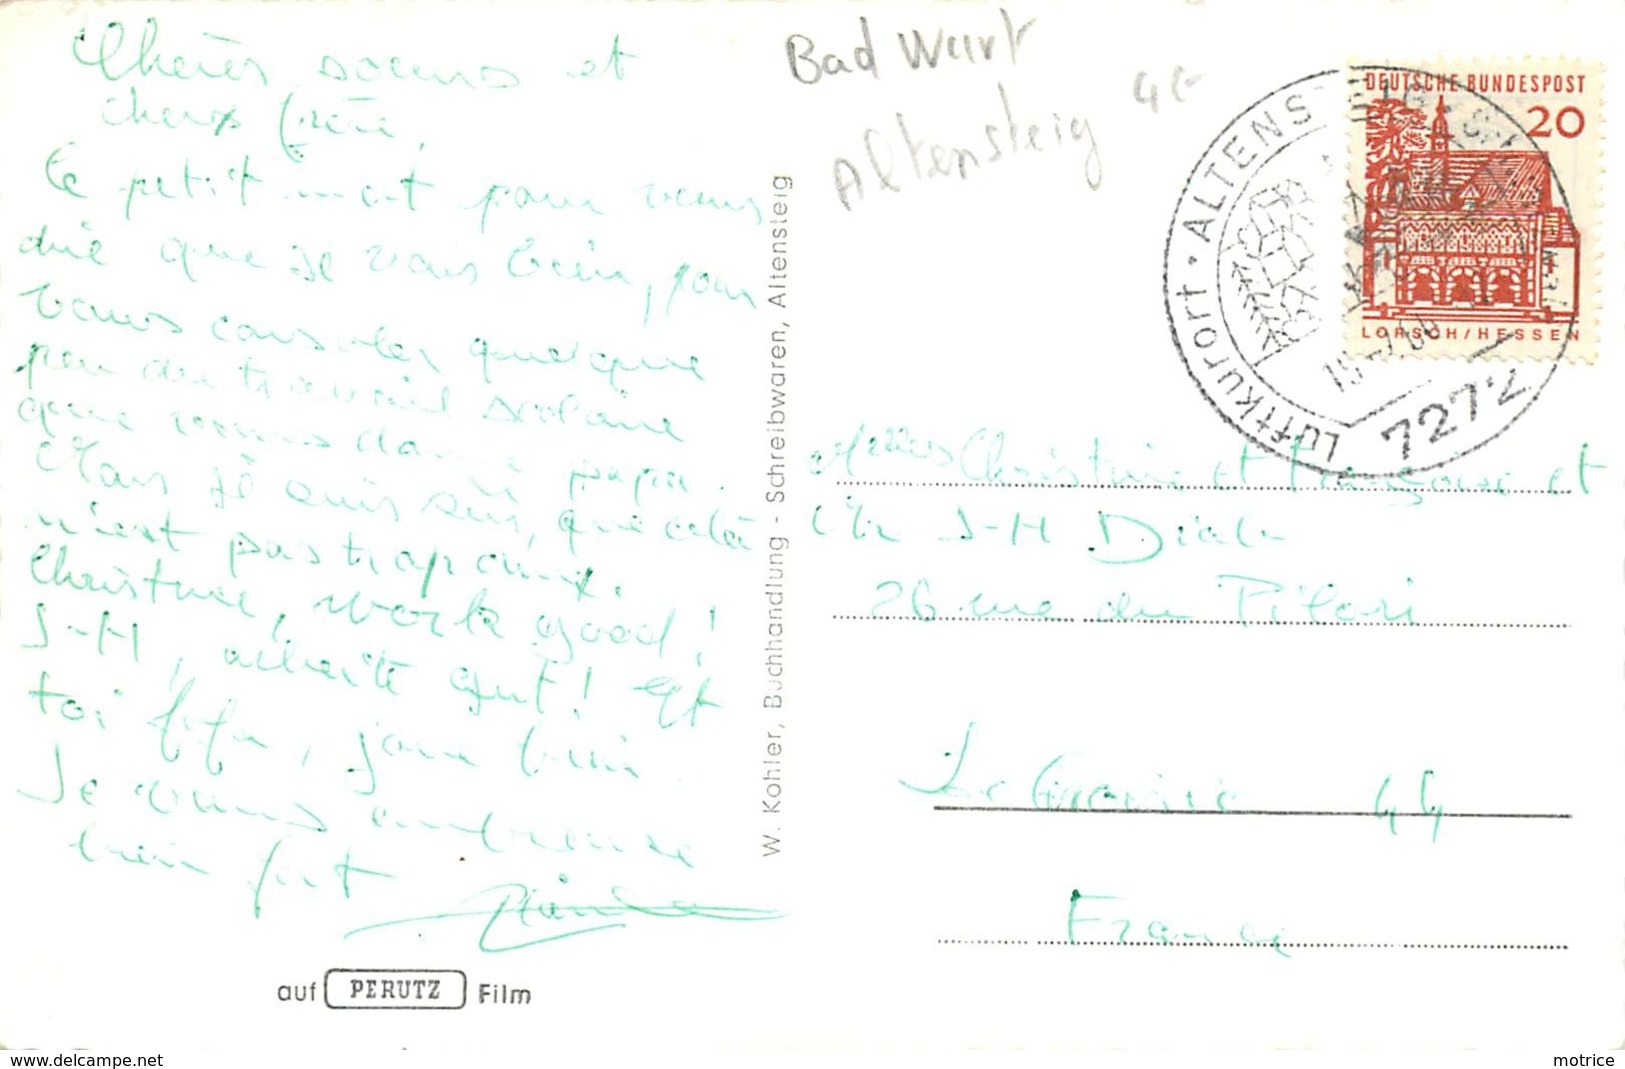 Chères soeurs et
cher frère,
Ce petit mot pour vous
dire que je vais bien, pour
vous consoler quelque
peu du travail scolaire
que vous donne papa.
Mais je suis sûr, que cela
n'est pas trop
Christine, work good!
J-H, arbeite gut! Et
toi fifa, joue bien.
Je vous embrasse
bien fort
auf PERUTZ Film
W. Kohler, Buchhandlung - Schreibwaren, Altensteig
Bad Wurt
Altensteig 4€
DEUTSCHE BUNDESPOST
20
LORSCH/HESSEN
Luftkurort · ALTENSTEIG
7272
Melles Christine et Françoise et
Mr J-H
26 rue du Pilori
Le 44
France
motrice
www.delcampe.net